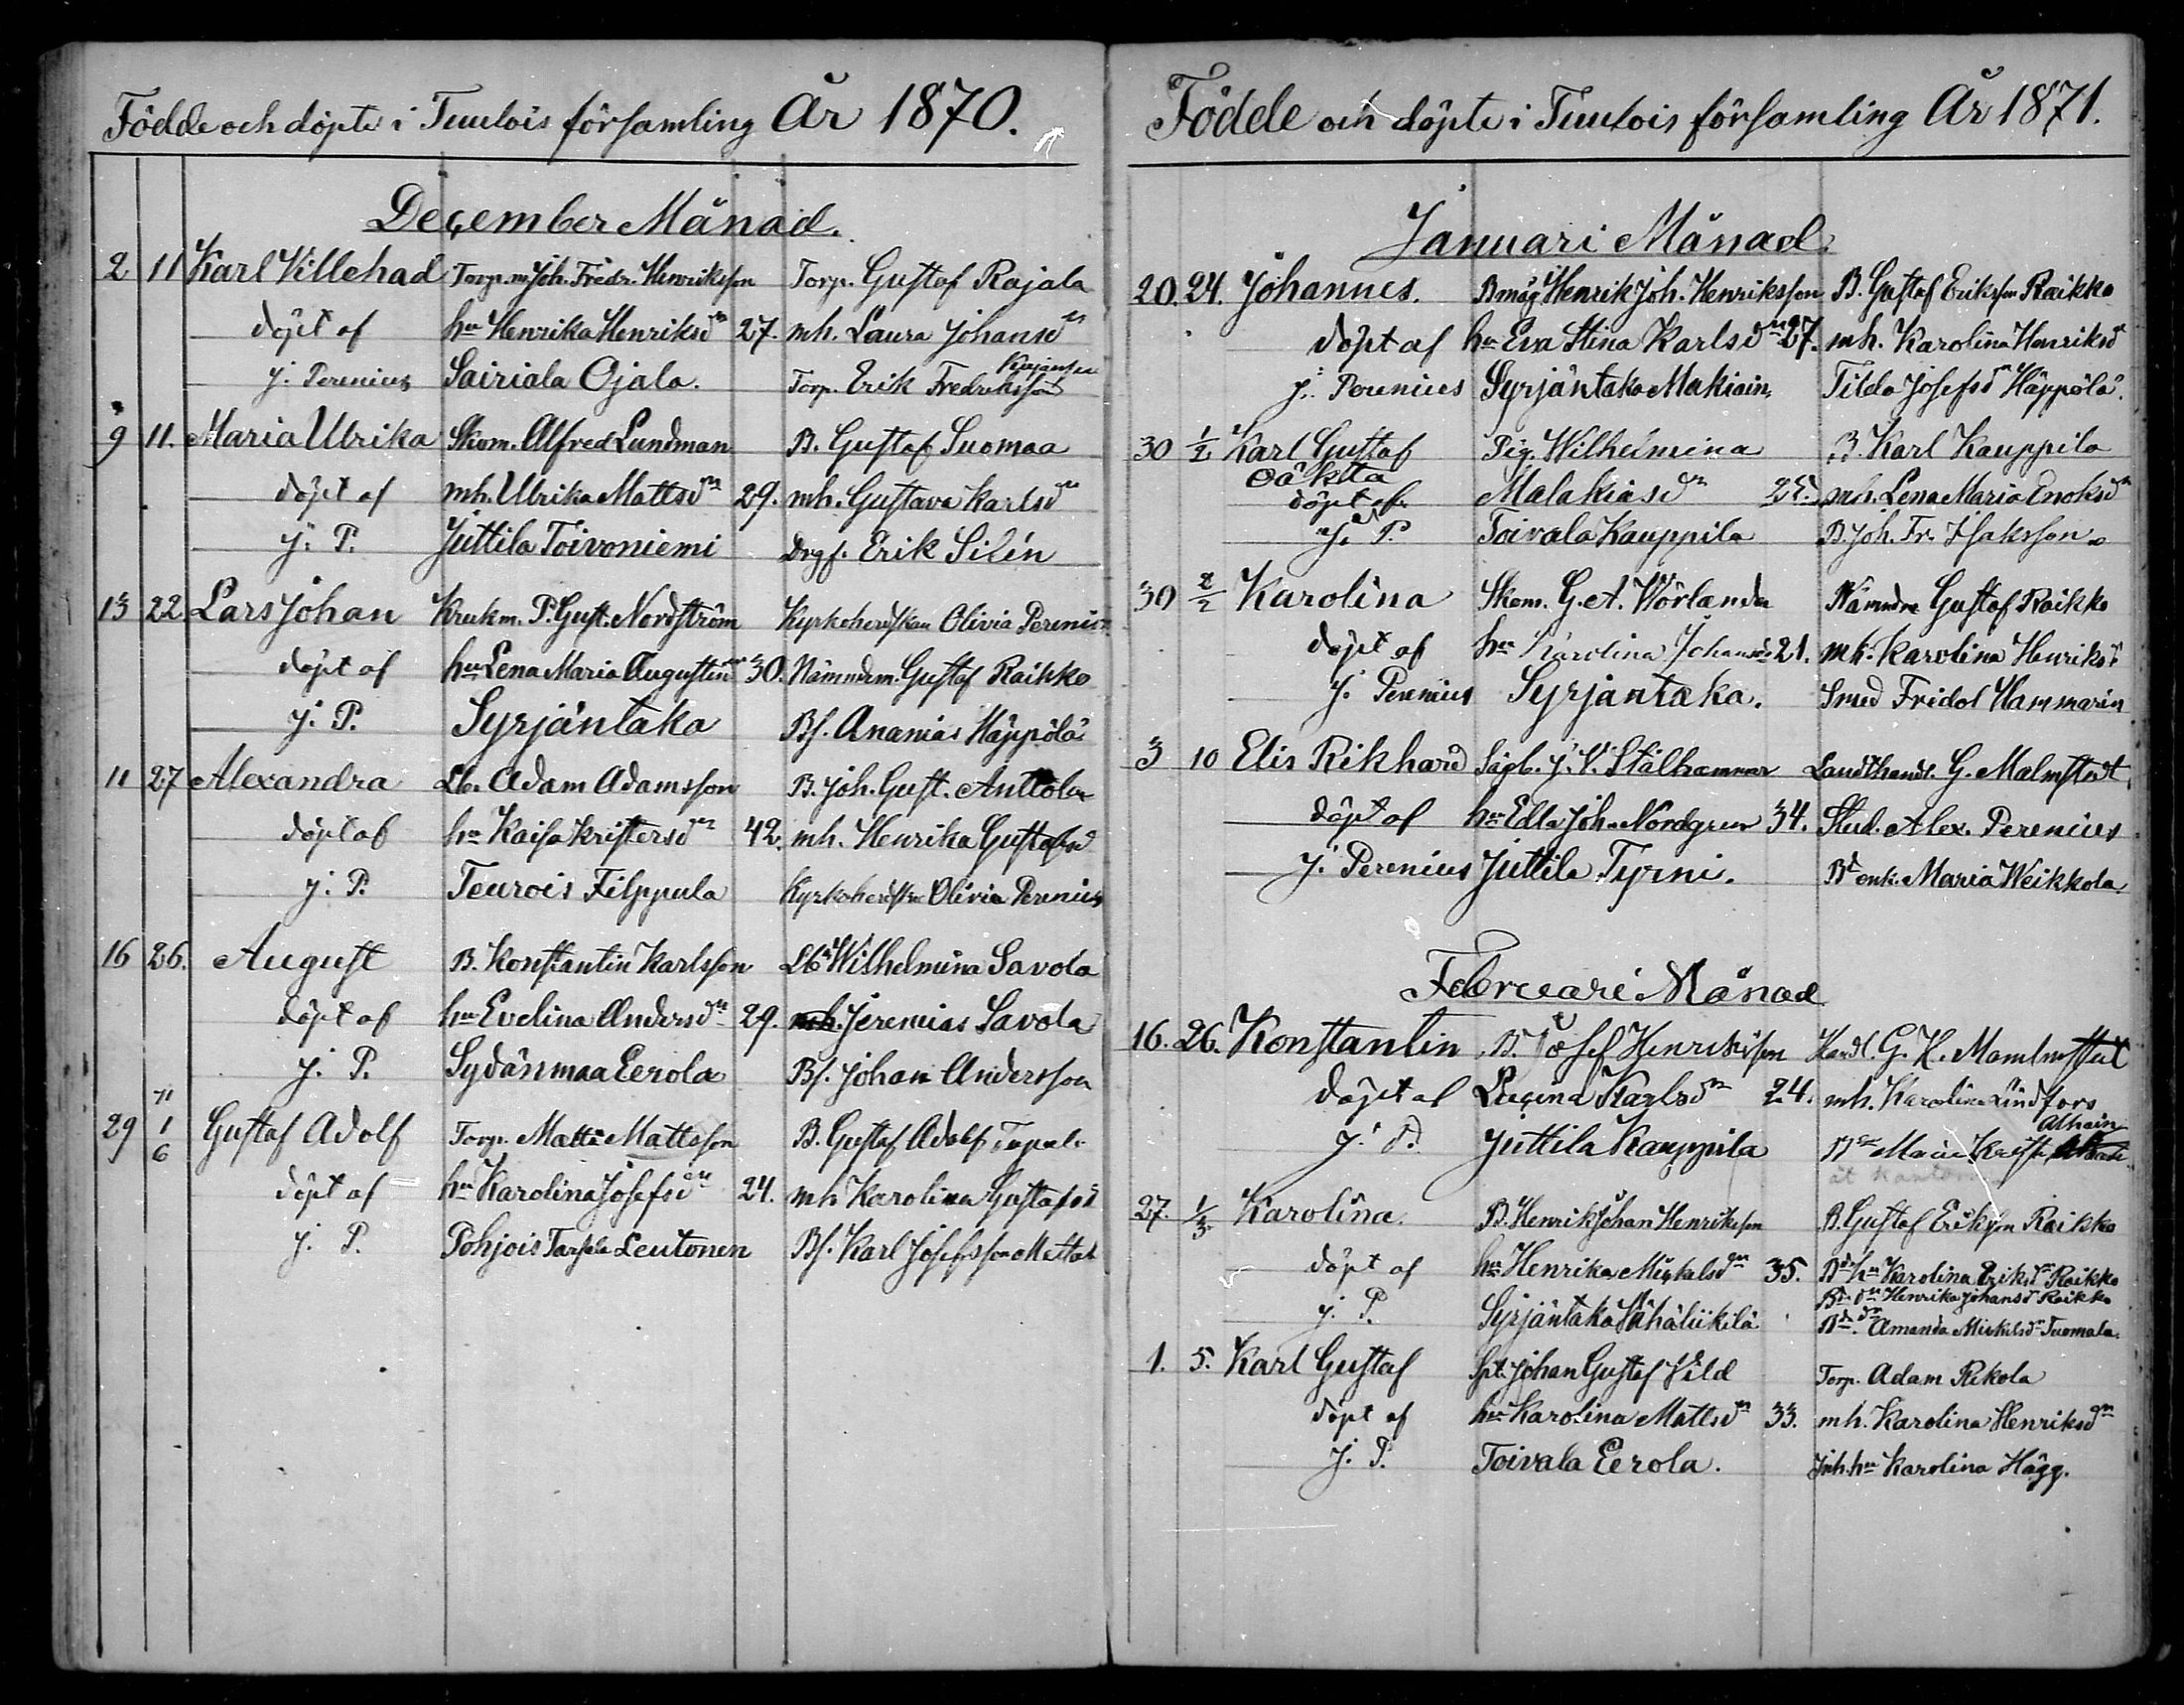 Födde och döpte i Tuulois församling År 1870.
December Månad.
2 11 Karl Villehad Torp.m. Joh. Fredr. Henriksson Torp. Gustaf Rajala
döpt af hu Henrika Henriksdr 27. mh. Laura Johansdr
J. Perenius Sairiala Ojala. Torp. Erik Fredriksson
9 11. Maria Ulrika Skom. Alfred Lundman B. Gustaf Suomaa
döpt af mh. Ulrika Mattsdr 29. mh. Gustava Karlsdr
J. P. Juttila Toivoniemi Drgf. Erik Silén
13 22. Lars Johan Krukm. P. Gust. Nordström Kyrkoherdskan Olivia Perenius
döpt af hu Lena Maria Augustin 30. Nämndem. Gustaf Raikko
J. P. Syrjäntaka Bs. Ananias Häppölä
11 27 Alexandra Lb. Adam Adamsson B. Joh. Gust. Anttola
döpt af hu Kaisa Kristersdr 42. mh. Henrika Gustafsd
J. P. Teurois Filppula Kyrkoherdskan Olivia Perenius
16 26. August B. Konstantin Karlsson Lb Wilhelmina Savola
döpt af hu Evelina Andersdr 29. Jeremias Savola
J. P. Sydänmaa Eerola Bs. Johan Andersson
29 1/6 71 Gustaf Adolf Torp. Matts Mattsson B. Gustaf Adolf
döpt af hu Karolina Josefsdr 24. mh Karolina Gustafsd
J. P. Pohjois Leutonen Bs. Karl Josefsson Mattas
Födde och döpte i Tuulois församling År 1871.
Januari Månad.
20. 24. Johannes. Bmåg Henrik Joh. Henriksson B. Gustaf Eriksson Raikko
döpt af hu Eva Stina Karlsdr 27. mh. Karolina Henriksd
J. Perenius Syrjäntaka Makiain, Tilda Josefsdr Häppölä.
30 1/2 Karl Gustaf Pig. Wilhelmina B. Karl Kauppila
Oäkta
döpt af Malakiasdr mh. Lena Maria Enoksdr
J. P. Toivala Kauppila B. Joh. Fr. Isaksson
30 2/2 Karolina Skom. G. A. Wörlander Nämndm Gustaf Raikko
döpt af hu Karolina Johansdr 21. mh. Karolina Henriksd
J. Perenius Syrjäntaka. Smed Fridol Hammarin
3 10 Elis Rikhard Sågb. J. V. Stålhammar Landthandl. G. Malmstedt
döpt af hu Edla Joh. Nordgren 34. Stud. Alex. Perenius
J. Perenius Juttila Tyrni. Bd enk. Maria Weikkola
Februari Månad
16. 26. Konstantin B. Josef Henriksson Handl. G. H.
döpt af Karlsdr 24. mh. Karolina Lindfors
J. P. Juttila Kauppila Alhain
27. 1/3. Karolina. B. Henrik Johan Henriksson B. Gustaf Eriksson Raikko
döpt af hu Henrika Mickelsdr 35. Bd hu Karolina Eriksdr Raikko
Bd dr Henrika Johansd Raikko
J. P. Syrjäntaka Vähäliikilä Bd. dr Amanda Mickelsdr Tuomala.
1. 5. Karl Gustaf Spt. Johan Gustaf Vild Torp. Adam Rekola
döpt af hu Karolina Mattsdr 33. mh. Karolina Henriksdr
J. P. Toivala Eerola. Inh. hu Karolina Hägg.